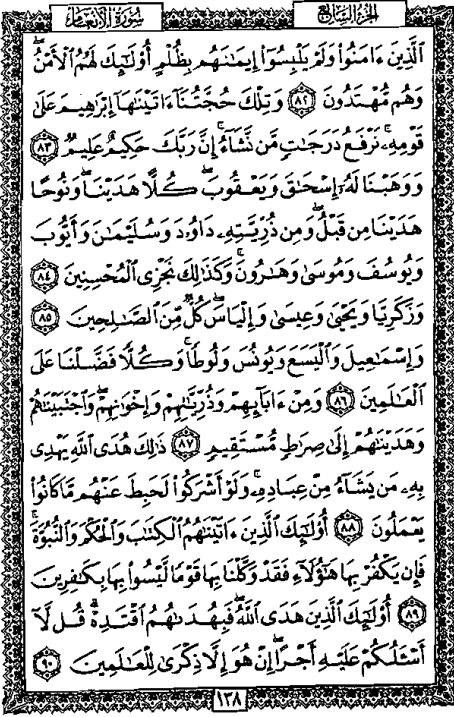 الجزء السابع
سورة الأنعام
ٱلَّذِينَ ءَامَنُوا۟ وَلَمْ يَلْبِسُوٓا۟ إِيمَٰنَهُم بِظُلْمٍ أُو۟لَٰٓئِكَ لَهُمُ ٱلْأَمْنُ
وَهُم مُّهْتَدُونَ ٨٢ وَتِلْكَ حُجَّتُنَآ ءَاتَيْنَٰهَآ إِبْرَٰهِيمَ عَلَىٰ
قَوْمِهِۦ ۚ نَرْفَعُ دَرَجَٰتٍ مَّن نَّشَآءُ ۗ إِنَّ رَبَّكَ حَكِيمٌ عَلِيمٌ ٨٣
وَوَهَبْنَا لَهُۥٓ إِسْحَٰقَ وَيَعْقُوبَ ۚ كُلًّا هَدَيْنَا ۚ وَنُوحًا
هَدَيْنَا مِن قَبْلُ ۖ وَمِن ذُرِّيَّتِهِۦ دَاوُۥدَ وَسُلَيْمَٰنَ وَأَيُّوبَ
وَيُوسُفَ وَمُوسَىٰ وَهَٰرُونَ ۚ وَكَذَٰلِكَ نَجْزِى ٱلْمُحْسِنِينَ ٨٤
وَزَكَرِيَّا وَيَحْيَىٰ وَعِيسَىٰ وَإِلْيَاسَ ۖ كُلٌّ مِّنَ ٱلصَّٰلِحِينَ ٨٥
وَإِسْمَٰعِيلَ وَٱلْيَسَعَ وَيُونُسَ وَلُوطًا ۚ وَكُلًّا فَضَّلْنَا عَلَى
ٱلْعَٰلَمِينَ ٨٦ وَمِنْ ءَابَآئِهِمْ وَذُرِّيَّٰتِهِمْ وَإِخْوَٰنِهِمْ ۖ وَٱجْتَبَيْنَٰهُمْ
وَهَدَيْنَٰهُمْ إِلَىٰ صِرَٰطٍ مُّسْتَقِيمٍ ٨٧ ذَٰلِكَ هُدَى ٱللَّهِ يَهْدِى
بِهِۦ مَن يَشَآءُ مِنْ عِبَادِهِۦ ۚ وَلَوْ أَشْرَكُوا۟ لَحَبِطَ عَنْهُم مَّا كَانُوا۟
يَعْمَلُونَ ٨٨ أُو۟لَٰٓئِكَ ٱلَّذِينَ ءَاتَيْنَٰهُمُ ٱلْكِتَٰبَ وَٱلْحُكْمَ وَٱلنُّبُوَّةَ ۚ
فَإِن يَكْفُرْ بِهَا هَٰٓؤُلَآءِ فَقَدْ وَكَّلْنَا بِهَا قَوْمًا لَّيْسُوا۟ بِهَا بِكَٰفِرِينَ
٨٩ أُو۟لَٰٓئِكَ ٱلَّذِينَ هَدَى ٱللَّهُ ۖ فَبِهُدَىٰهُمُ ٱقْتَدِهْ ۗ قُل لَّآ
أَسْـَٔلُكُمْ عَلَيْهِ أَجْرًا ۖ إِنْ هُوَ إِلَّا ذِكْرَىٰ لِلْعَٰلَمِينَ ٩٠
١٣٨